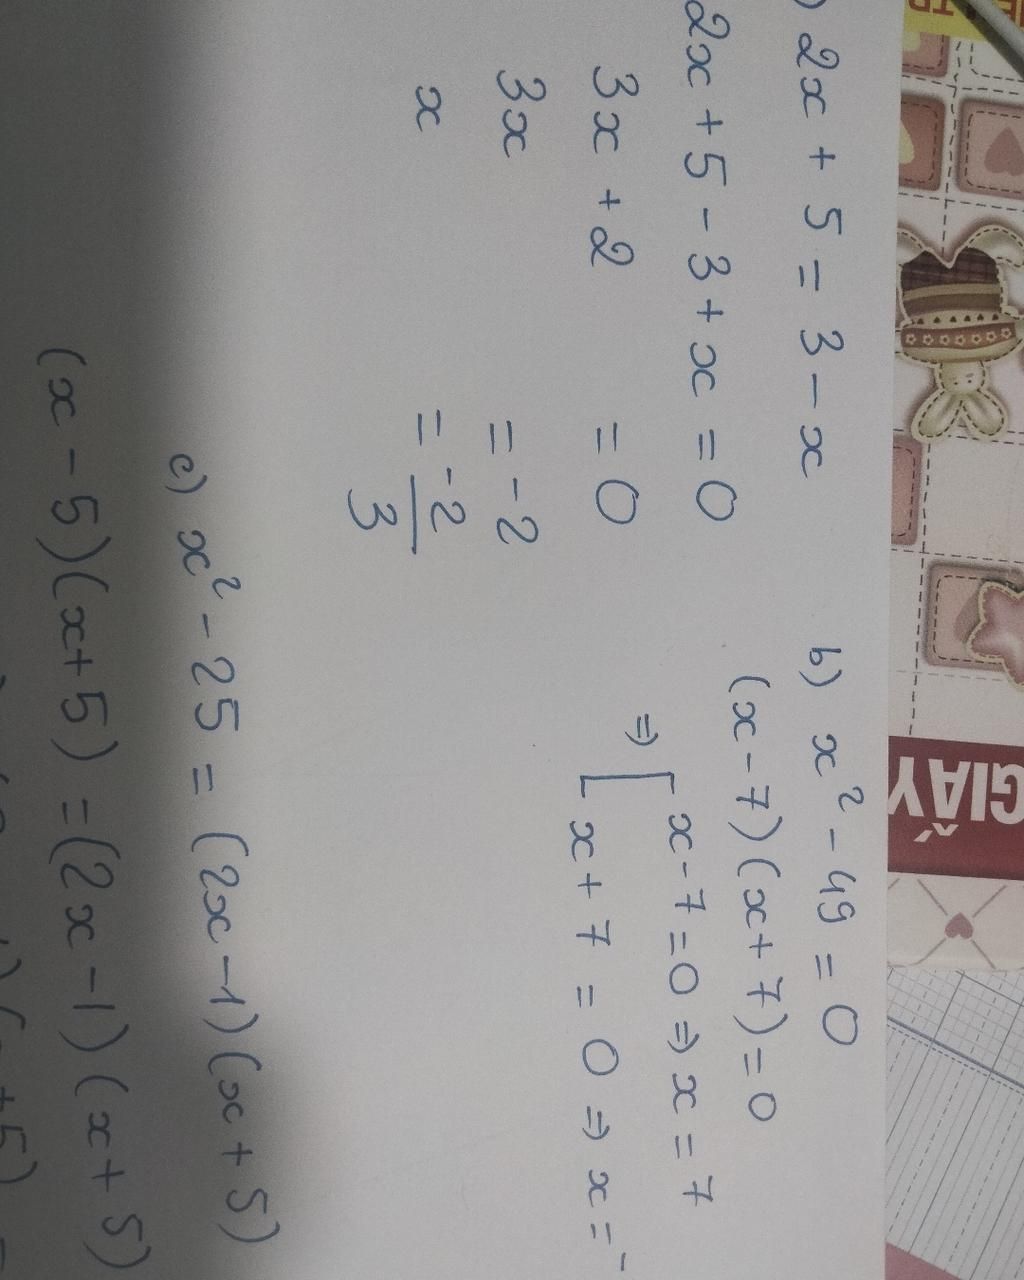 ) 2x + 5 = 3 - x
2x + 5 - 3 + x = 0
3x + 2 = 0
3x = -2
x = -2/3
b) x² - 49 = 0
(x - 7)(x + 7) = 0
⇒ [ x - 7 = 0 ⇒ x = 7
x + 7 = 0 ⇒ x = -
c) x² - 25 = (2x - 1)(x + 5)
(x - 5)(x + 5) = (2x - 1)(x + 5)
GIẤY